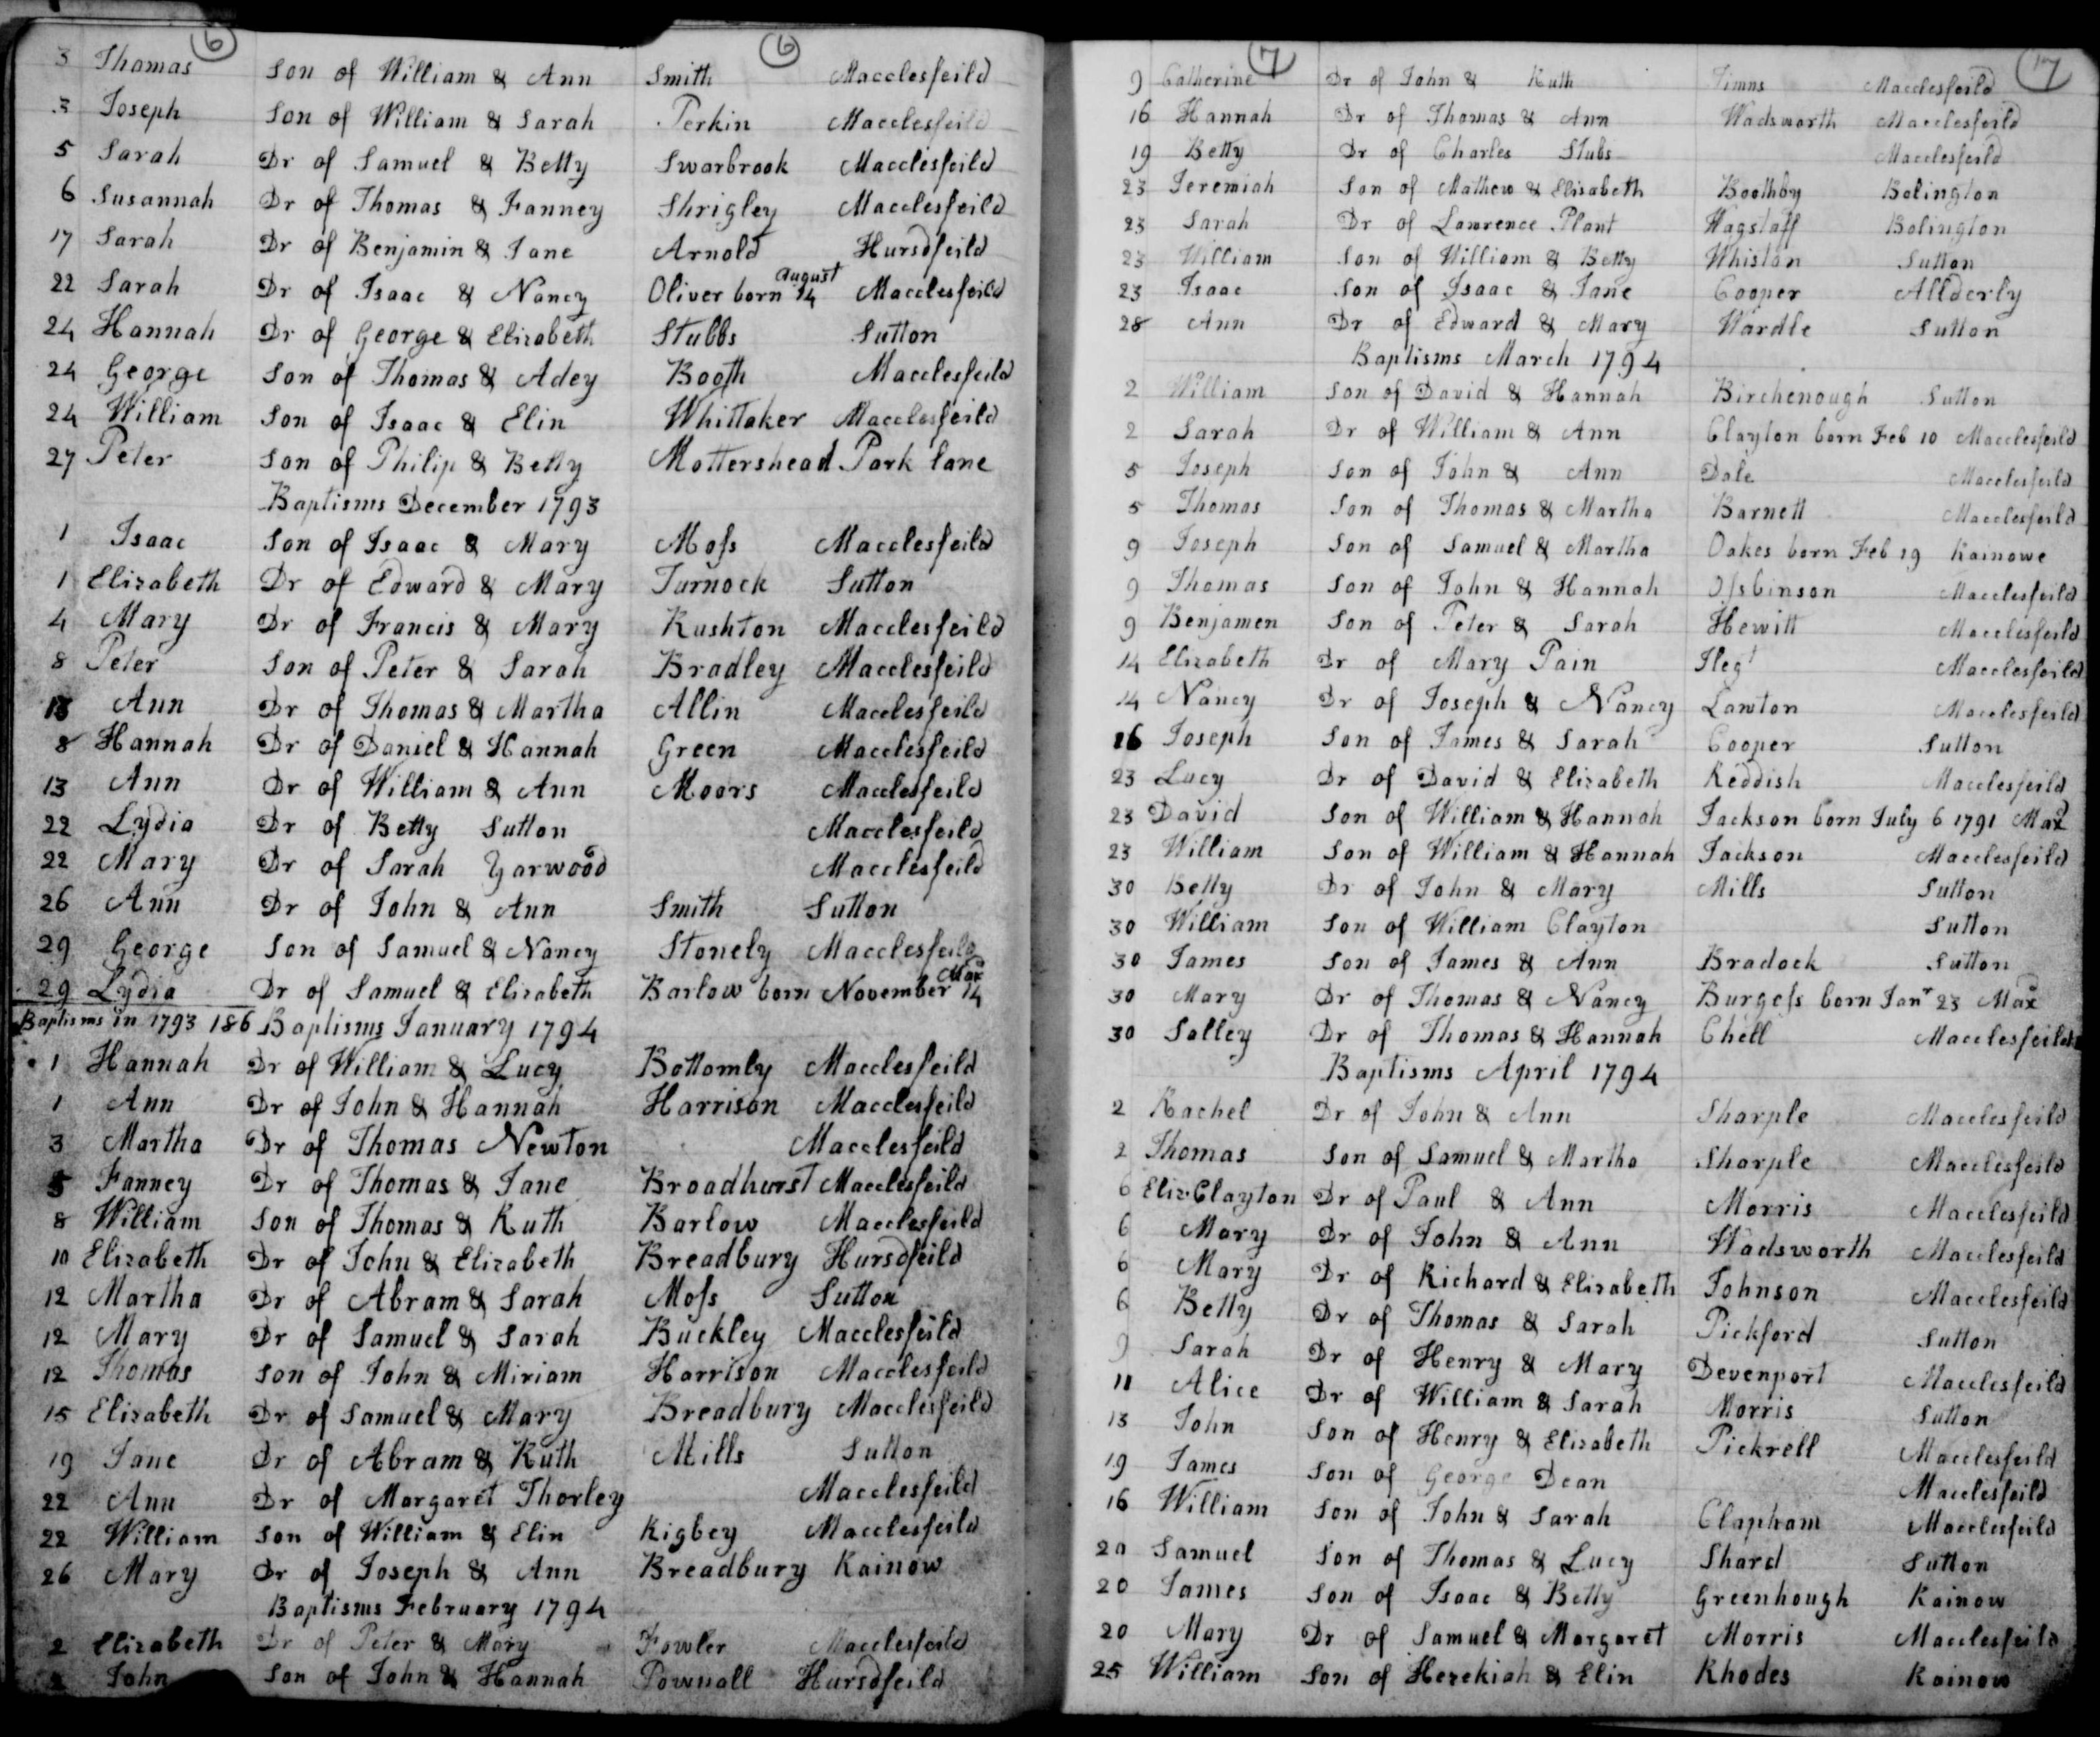 6 6
3 Thomas Son of William & Ann Smith Macclesfeild
3 Joseph Son of William & Sarah Perkin Macclesfeild
5 Sarah Dr of Samuel & Betty Swarbrook Macclesfeild
6 Susannah Dr of Thomas & Fanney Shrigley Macclesfeild
17 Sarah Dr of Benjamin & Jane Arnold Hursdfeild
22 Sarah Dr of Isaac & Nancy Oliver born august 14 Macclesfeild
24 Hannah Dr of George & Elizabeth Stubbs Sutton
24 George Son of Thomas & Adey Booth Macclesfeild
24 William Son of Isaac & Elin Whittaker Macclesfeild
27 Peter Son of Philip & Betty Mottershead Park lane
Baptisms December 1793
1 Isaac Son of Isaac & Mary Moss Macclesfeild
1 Elizabeth Dr of Edward & Mary Turnock Sutton
4 Mary Dr of Francis & Mary Rushton Macclesfeild
8 Peter Son of Peter & Sarah Bradley Macclesfeild
18 Ann Dr of Thomas & Martha Allin Macclesfeild
8 Hannah Dr of Daniel & Hannah Green Macclesfeild
13 Ann Dr of William & Ann Moors Macclesfeild
22 Lydia Dr of Betty Sutton Macclesfeild
22 Mary Dr of Sarah Yarwood Macclesfeild
26 Ann Dr of John & Ann Smith Sutton
29 George Son of Samuel & Nancy Stonely Macclesfeild
29 Lydia Dr of Samuel & Elizabeth Barlow born November 14 Maxd
Baptisms in 1793 186 Baptisms January 1794
1 Hannah Dr of William & Lucy Bottomly Macclesfeild
1 Ann Dr of John & Hannah Harrison Macclesfeild
3 Martha Dr of Thomas Newton Macclesfeild
5 Fanney Dr of Thomas & Jane Broadhurst Macclesfeild
8 William Son of Thomas & Ruth Barlow Macclesfeild
10 Elizabeth Dr of John & Elizabeth Breadbury Hursdfeild
12 Martha Dr of Abram & Sarah Moss Sutton
12 Mary Dr of Samuel & Sarah Buckley Macclesfeild
12 Thomas Son of John & Miriam Harrison Macclesfeild
15 Elizabeth Dr of Samuel & Mary Breadbury Macclesfeild
19 Jane Dr of Abram & Ruth Mills Sutton
22 Ann Dr of Margaret Thorley Macclesfeild
22 William Son of William & Elin Rigbey Macclesfeild
26 Mary Dr of Joseph & Ann Breadbury Rainow
Baptisms February 1794
2 Elizabeth Dr of Peter & Mary Fowler Macclesfeild
John Son of John & Hannah Pownall Hursdfeild
7 17
9 Catherine Dr of John & Ruth Timns Macclesfeild
16 Hannah Dr of Thomas & Ann Wadsworth Macclesfeild
19 Betty Dr of Charles Stubs Macclesfeild
23 Jeremiah Son of Mathew & Elizabeth Boothby Bolington
23 Sarah Dr of Lawrence Plant Wagstaff Bolington
23 William Son of William & Betty Whiston Sutton
23 Isaac Son of Isaac & Jane Cooper Allderly
28 Ann Dr of Edward & Mary Wardle Sutton
Baptisms March 1794
2 William Son of David & Hannah Birchenough Sutton
2 Sarah Dr of William & Ann Clayton born Feb 10 Macclesfeild
5 Joseph Son of John & Ann Dale Macclesfeild
5 Thomas Son of Thomas & Martha Barnett Macclesfeild
9 Joseph Son of Samuel & Martha Oakes born Feb 19 Rainowe
9 Thomas Son of John & Hannah Ossbinson Macclesfeild
9 Benjamen Son of Peter & Sarah Hewitt Macclesfeild
14 Elizabeth Dr of Mary Pain Ilegt Macclesfeild
14 Nancy Dr of Joseph & Nancy Lawton Macclesfeild
16 Joseph Son of James & Sarah Cooper Sutton
23 Lucy Dr of David & Elizabeth Reddish Macclesfeild
23 David Son of William & Hannah Jackson born July 6 1791 Maxd
23 William Son of William & Hannah Jackson Macclesfeild
30 Betty Dr of John & Mary Mills Sutton
30 William Son of William Clayton Sutton
30 James Son of James & Ann Bradock Sutton
30 Mary Dr of Thomas & Nancy Burgess born Janr 23 Maxd
30 Salley Dr of Thomas & Hannah Chell Macclesfeild
Baptisms April 1794
2 Rachel Dr of John & Ann Sharple Macclesfeild
2 Thomas Son of Samuel & Martha Sharple Macclesfeild
6 Eliz Clayton Dr of Paul & Ann Morris Macclesfeild
6 Mary Dr of John & Ann Wadsworth Macclesfeild
6 Mary Dr of Richard & Elizabeth Johnson Macclesfeild
6 Betty Dr of Thomas & Sarah Pickford Sutton
9 Sarah Dr of Henry & Mary Devenport Macclesfeild
11 Alice Dr of William & Sarah Morris Sutton
13 John Son of Henry & Elizabeth Pickrell Macclesfeild
19 James Son of George Dean Macclesfeild
16 William Son of John & Sarah Clapham Macclesfeild
20 Samuel Son of Thomas & Lucy Shard Sutton
20 James Son of Isaac & Betty Greenhough Rainow
20 Mary Dr of Samuel & Margaret Morris Macclesfeild
25 William Son of Hezekiah & Elin Rhodes Rainow